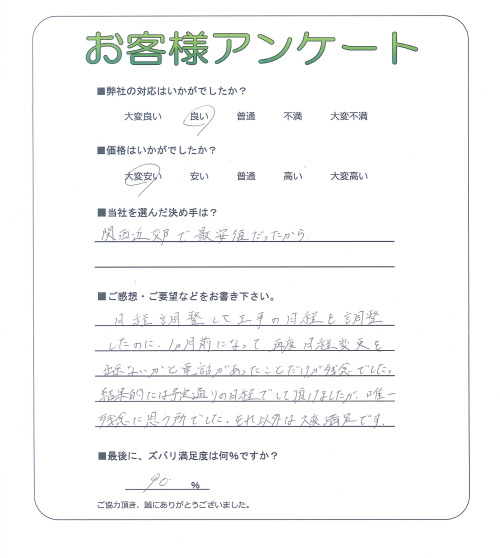 お客様アンケート
■弊社の対応はいかがでしたか？
大変良い 良い 普通 不満 大変不満
■価格はいかがでしたか？
大変安い 安い 普通 高い 大変高い
■当社を選んだ決め手は？
関西近郊で最安値だったから
■ご感想・ご要望などをお書き下さい。
日程調整して工事の日程を調整
したのに、1ヵ月前になって再度日程変更を
出来ないかと電話があったことだけが残念でした。
結果的には予定通りの日程でして頂けましたが、唯一
残念に思う所でした。それ以外は大変満足です。
■最後に、ズバリ満足度は何％ですか？
90 ％
ご協力頂き、誠にありがとうございました。